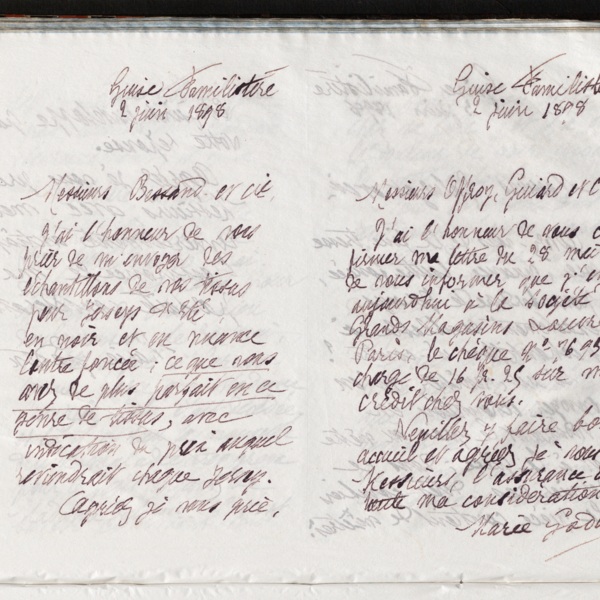 Guise Familistère
2 juin 1898
Messieurs Bessand et cie,
J'ai l'honneur de vous
prier de m'envoyer des
échantillons de vos tissus
pour Jerseys d'été
en noir et en nuance
loutre foncée ; ce que vous
avez de plus parfait en ce
genre de tissus, avec
indication du prix auquel
reviendrait chaque Jersey.
Agréez, je vous prie,
Guise Familistè
2 juin 1898
Messieurs Offroy, Guiard et C
J'ai l'honneur de vous c
firmer ma lettre du 28 mai
de vous informer que j'
aujourd'hui à la Société
Grands Magasins Louvre
Paris le chèque n°
charge de 16 25 sur m
crédit chez vous.
Veuillez y faire bo
accueil et agréez je vous
Messieurs, l'assurance d
toute ma considération
Marie God